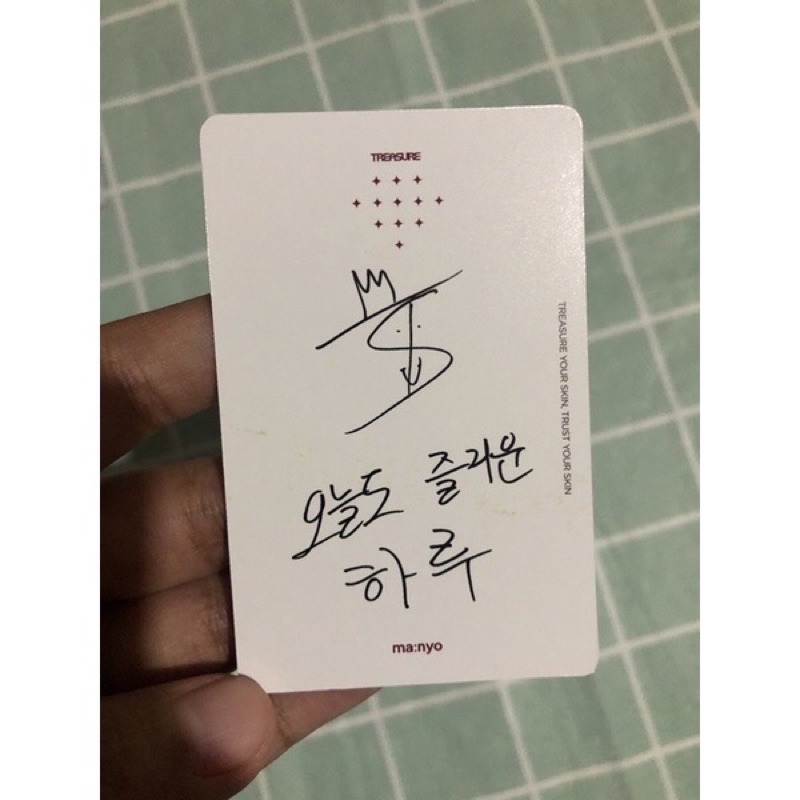 TREASURE
오늘도 즐거운
하루
TREASURE YOUR SKIN, TRUST YOUR SKIN
ma:nyo